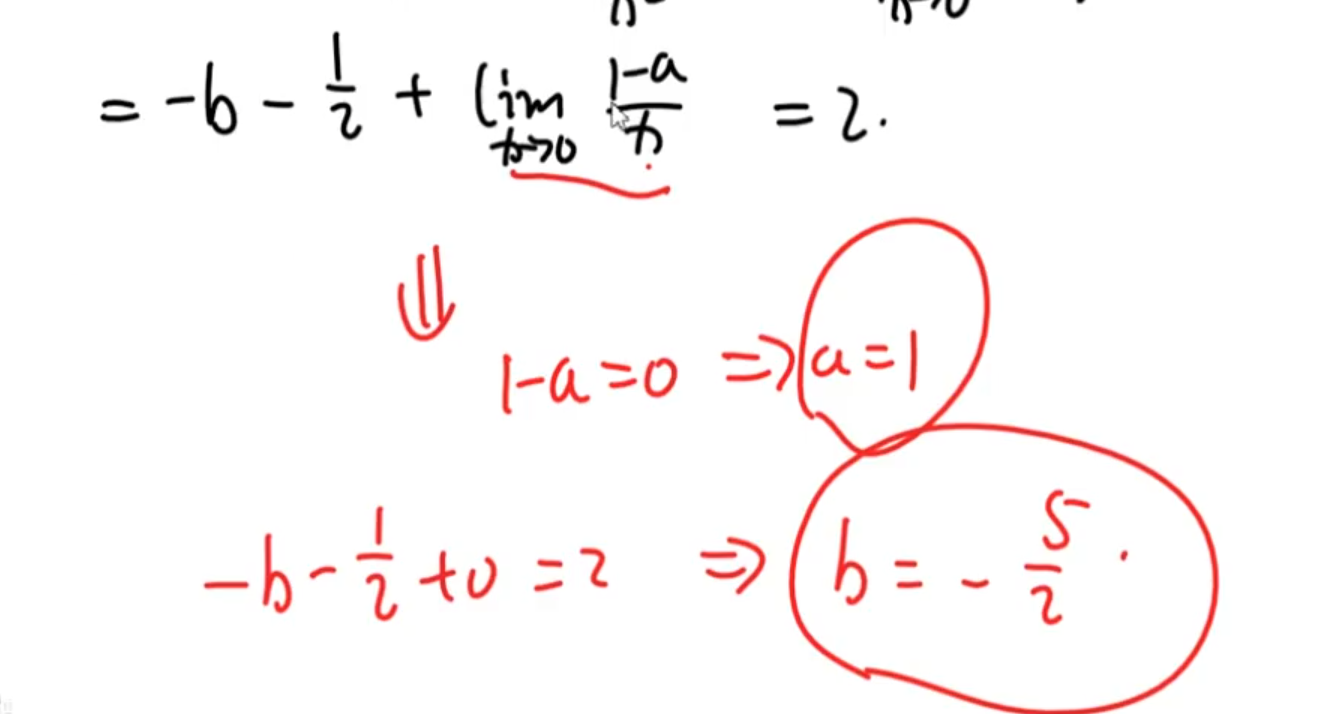 = -b - 1/2 + lim x→0 (1-a)/x = 2.
1-a=0 ⇒ a=1
-b - 1/2 + 0 = 2 ⇒ b = - 5/2.